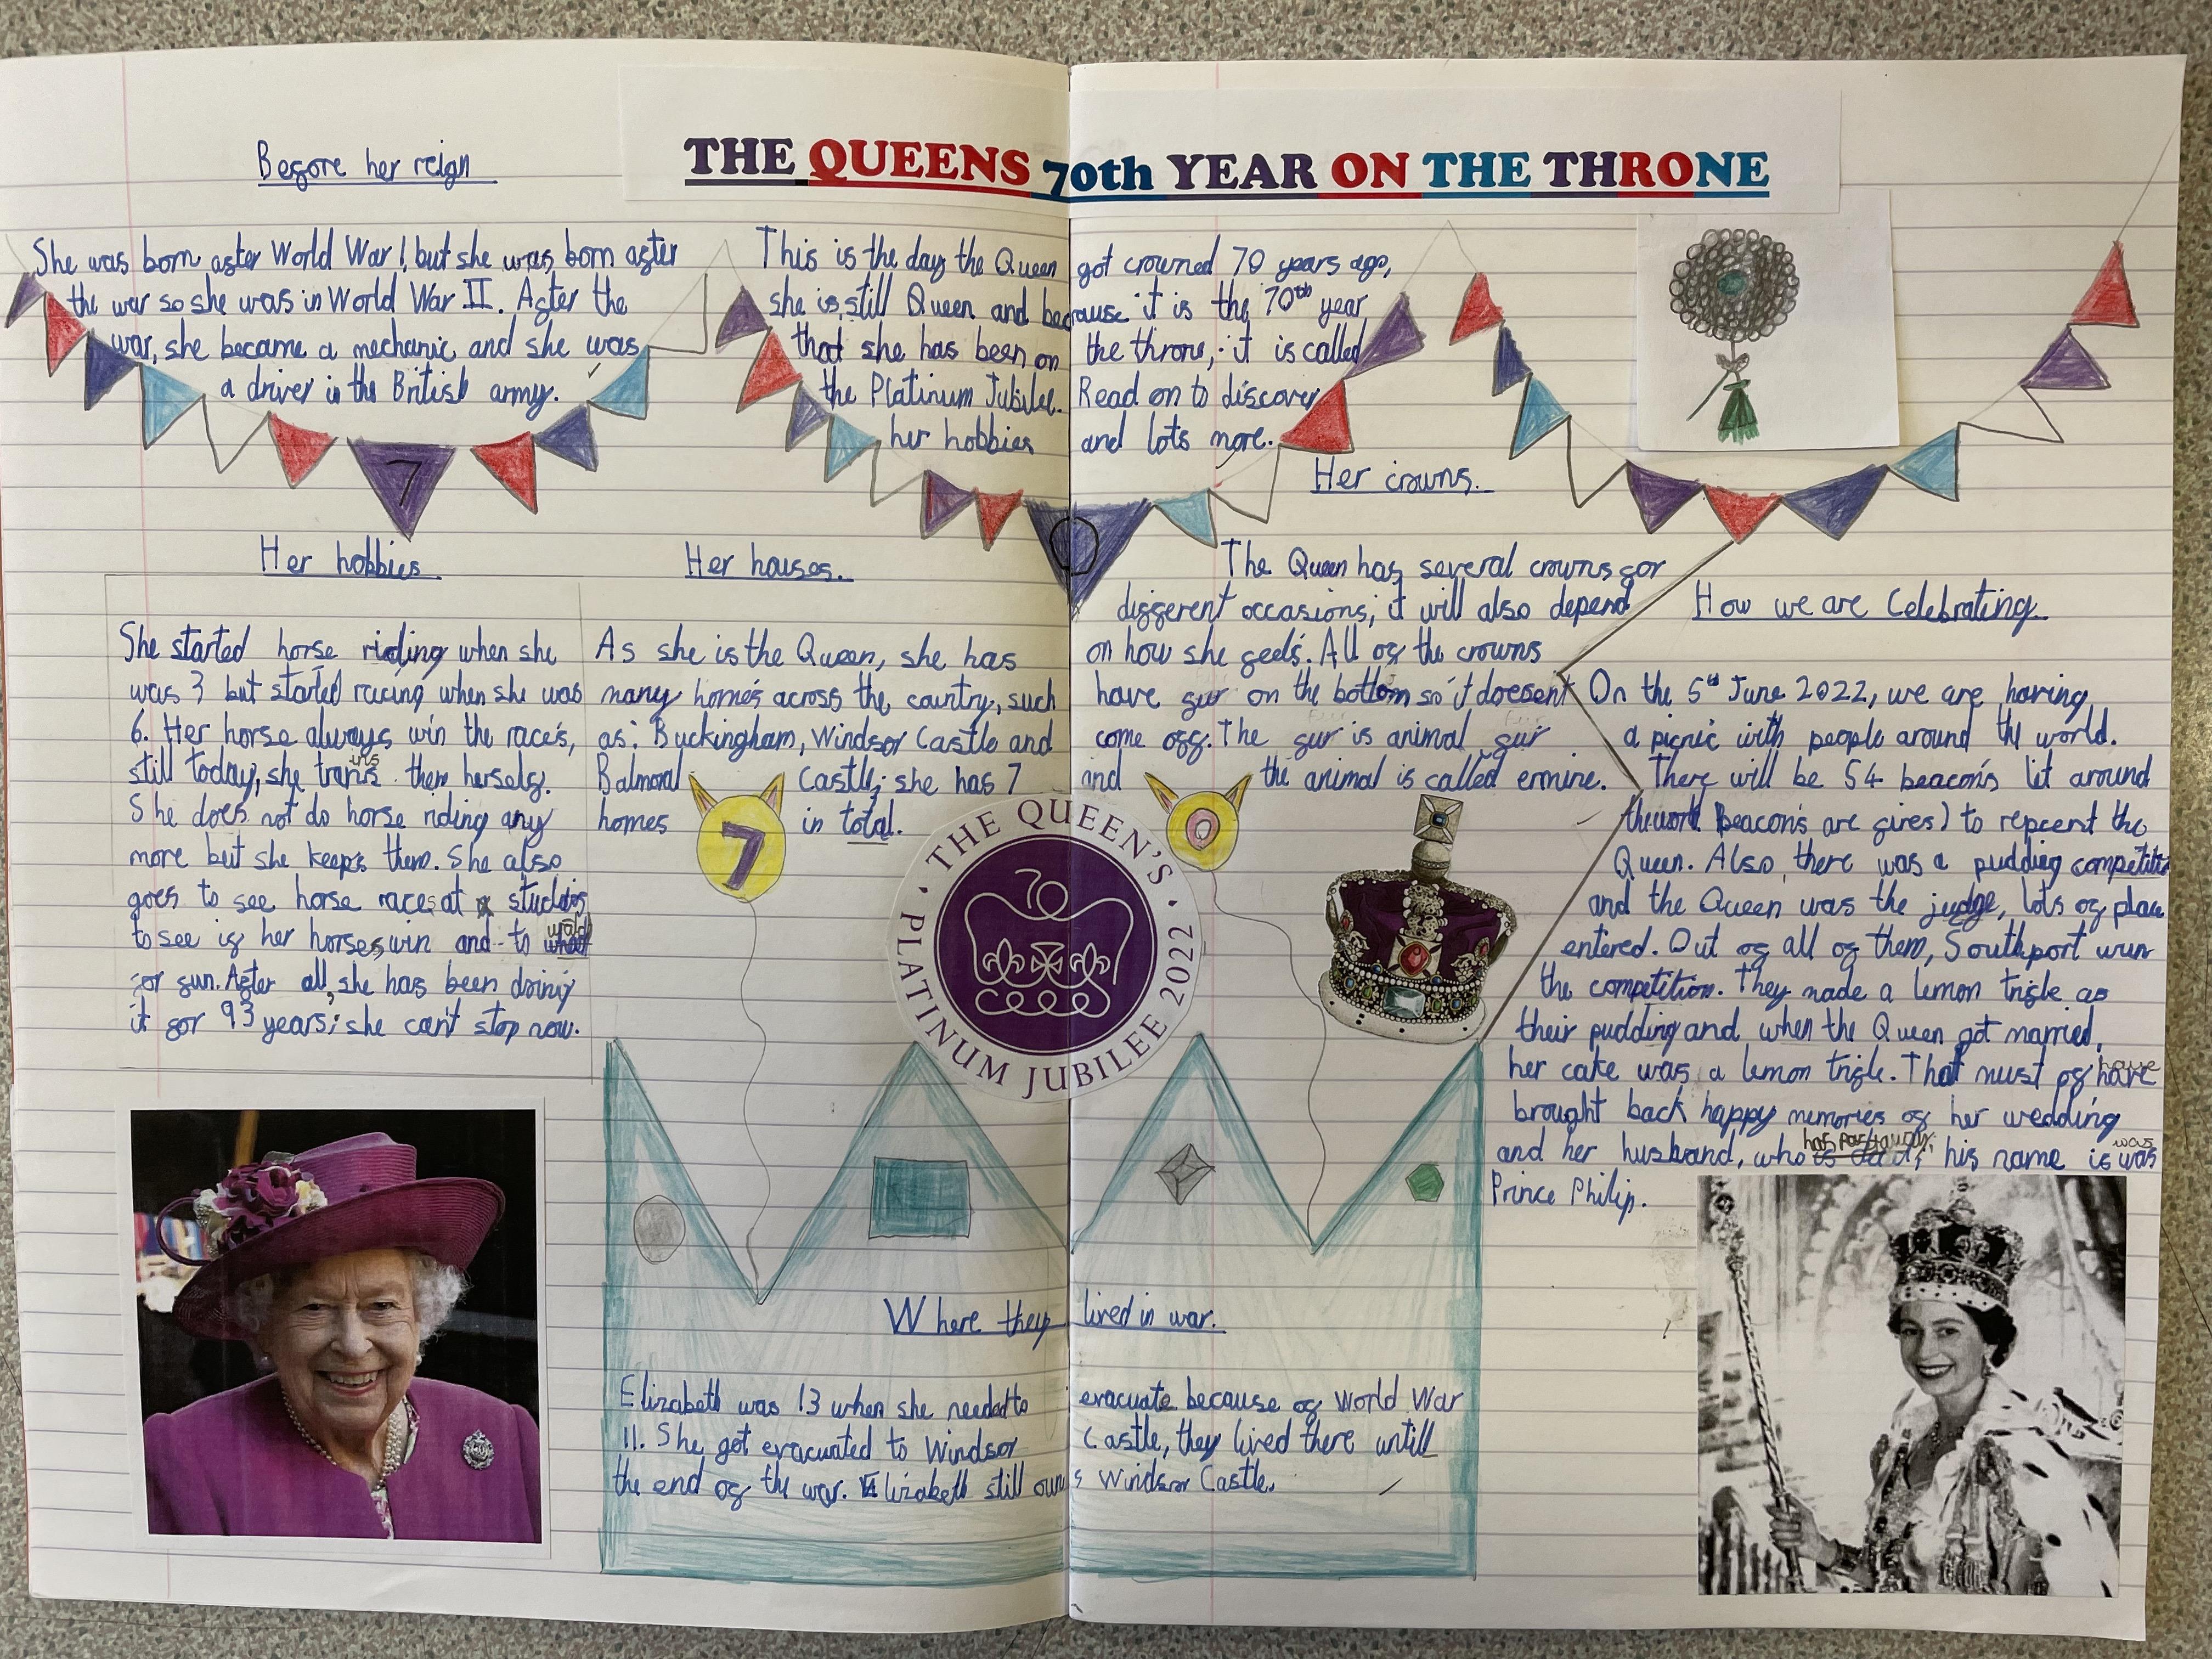 THE QUEENS 70th YEAR ON THE THRONE
Before her reign
She was born after World War 1, but she was born after
the war so she was in World War II. After the
war, she became a mechanic and she was
a driver in the British army.
7
This is the day the Queen got crowned 70 years ago,
she is still Queen and because it is the 70th year
that she has been on the throne, it is called
the Platinum Jubilee. Read on to discover
her hobbies and lots more.
0
Her hobbies
She started horse riding when she
was 3 but started racing when she was
6. Her horse always win the race's,
still today, she trains them herself.
She does not do horse riding any
more but she keep's them. She also
goes to see horse races at
to see if her horses win and to watch
for fun. After all, she has been doing
it for 93 years; she can't stop now.
Her houses.
As she is the Queen, she has
many home's across the country, such
as: Buckingham, Windsor Castle and
Balmoral Castle; she has 7
homes in total.
7
0
Her crowns.
The Queen has several crowns for
different occasions; it will also depend
on how she feels. All of the crowns
have fur on the bottom so it doesent
come off. The fur is animal fur
and the animal is called ermine.
THE QUEEN'S
70
PLATINUM JUBILEE 2022
How we are Celebrating.
On the 5th June 2022, we are having
a picnic with people around the world.
There will be 54 beacon's lit around
the world (beacon's are fires) to repcent the
Queen. Also, there was a pudding competition
and the Queen was the judge, lots of place
entered. Out of all of them, Southport wun
the competition. They made a lemon trifle as
their pudding and when the Queen got married,
her cake was a lemon trifle. That must of have
brought back happy memories of her wedding
and her husband, who has past away; his name is was
Prince Philip.
Where they lived in war.
Elizabeth was 13 when she needed to evacuate because of World War
11. She got evacuated to Windsor Castle, they lived there untill
the end of the war. Elizabeth still owns Windsor Castle.